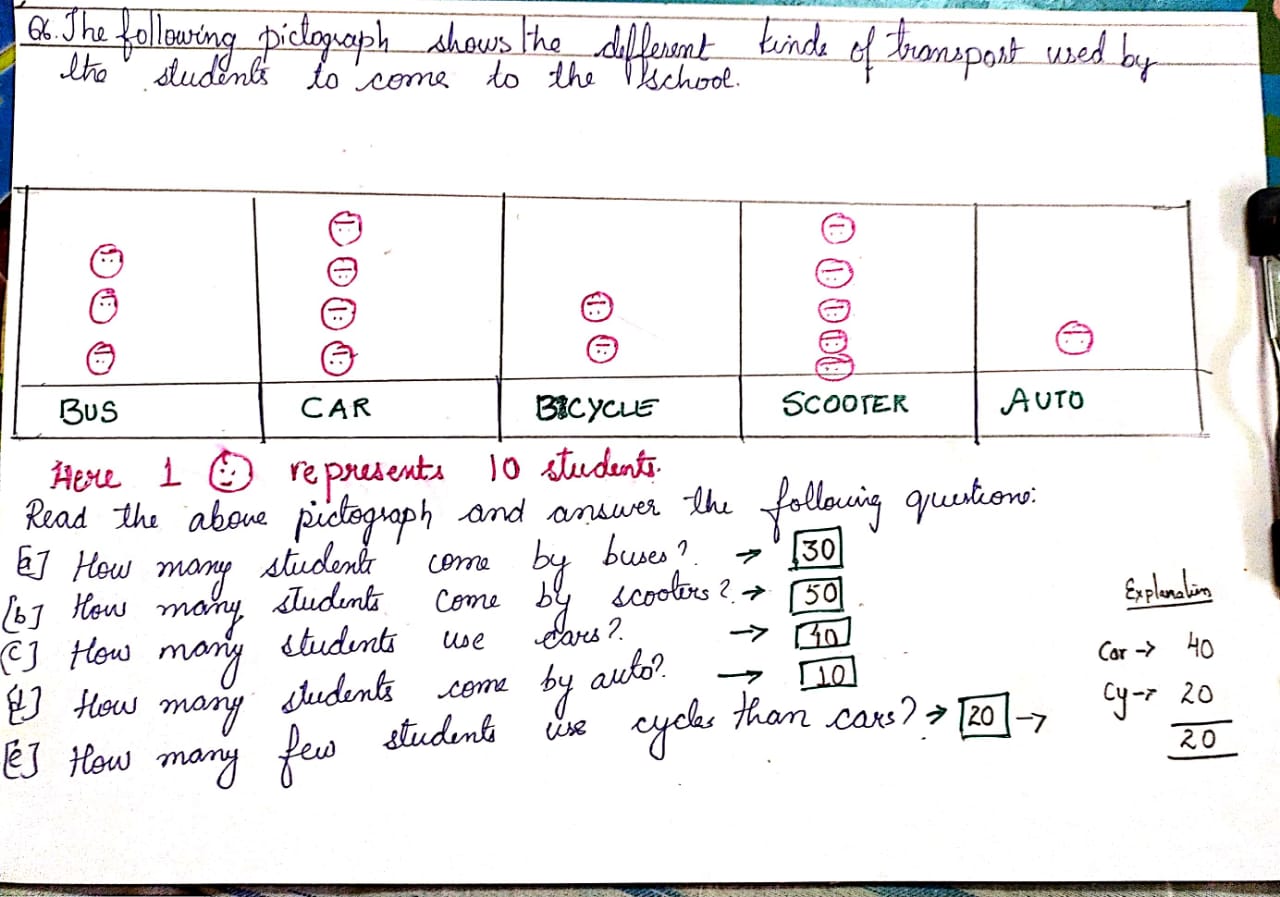 Q6. The following pictograph shows the different kinde of transport used by
the students to come to the school.
BUS CAR BICYCLE SCOOTER AUTO
Here 1 represents 10 students.
Read the above pictograph and answer the following questions:
[a] How many students come by buses? → 30
[b] How many students come by scooters? → 50
[c] How many students use cars? → 40
[d] How many students come by auto? → 10
[e] How many few students use cycles than cars? → 20 →
Explanation
Car → 40
Cy → 20
20